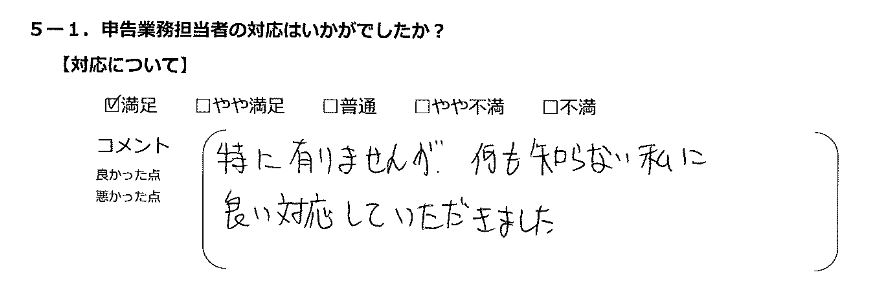 5－1．申告業務担当者の対応はいかがでしたか？
【対応について】
☑満足 □やや満足 □普通 □やや不満 □不満
コメント
良かった点
悪かった点
特に有りませんが、何も知らない私に
良い対応していただきました